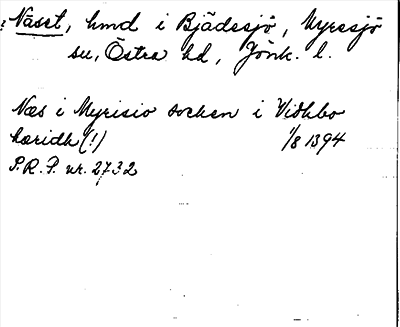 Näset, hmd i Bjädesjö, Myresjö
sn, Östra hd, Jönk. l.
Næs i Myrisio socken i Vidhbo
hæridh (!) 1/8 1394
P.R.P. nr. 2732